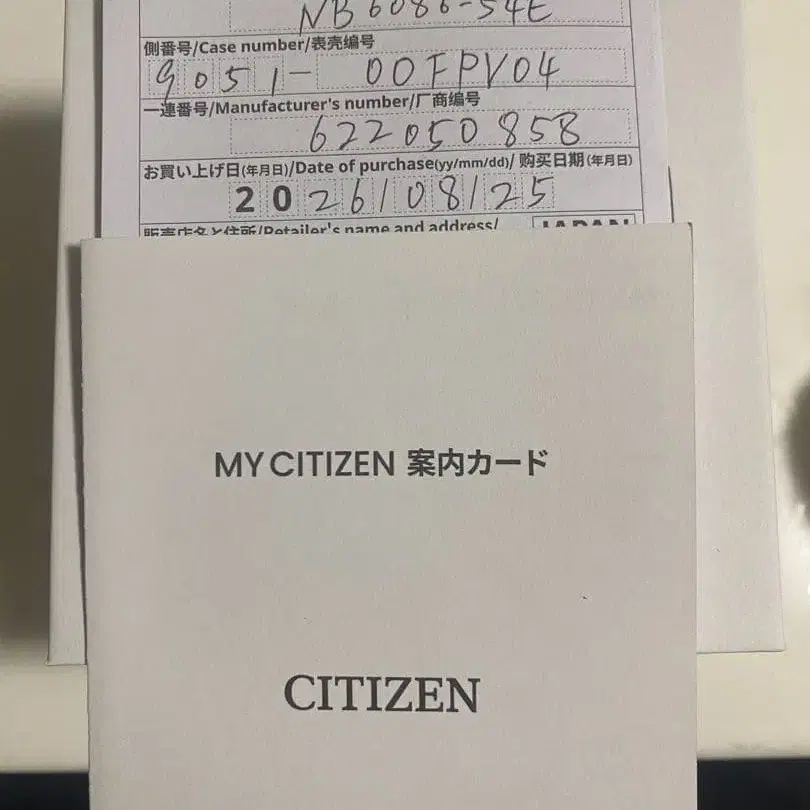 NB6086-54E
側番号/Case number/表壳编号
9051-00FPV04
一連番号/Manufacturer's number/厂商编号
622050858
お買い上げ日(年月日)/Date of purchase(yy/mm/dd)/购买日期(年月日)
2026/08/25
販売店名と住所/Retailer's name and address/
JAPAN
MY CITIZEN 案内カード
CITIZEN